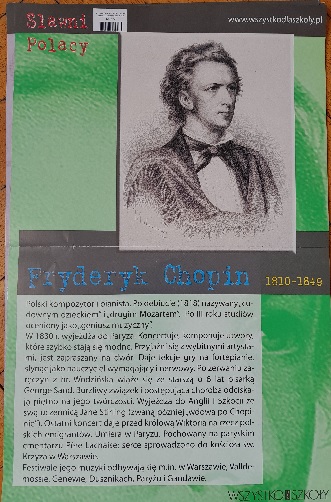 Sławni
Polacy
www.wszystkodlaszkoly.pl
Fryderyk Chopin 1810-1849
Polski kompozytor i pianista. Po debiucie (1818) nazywany „cu-
downym dzieckiem” i „drugim Mozartem”. Po III roku studiów
oceniony jako „geniusz muzyczny”.
W 1830 r. wyjeżdża do Paryża. Koncertuje, komponuje utwory,
które szybko stają się modne. Przyjaźni się z wybitnymi artysta-
mi, jest zapraszany na dwór. Daje lekcje gry na fortepianie,
słynąc jako nauczyciel wymagający i nerwowy. Po zerwaniu za-
ręczyn z m. Wodzińską wiąże się ze starszą o 6 lat pisarką
George Sand. Burzliwy związek i postępująca choroba odciska-
ją piętno na jego twórczości. Wyjeżdża do Anglii i Szkocji ze
swą uczennicą Jane Stirling (zwaną później „wdową po Chopi-
nie”). Ostatni koncert daje przed królową Wiktorią na rzecz pol-
skich emigrantów. Umiera w Paryżu. Pochowany na paryskim
cmentarzu Père Lachaise; serce sprowadzono do kościoła św.
Krzyża w Warszawie.
Festiwale jego muzyki odbywają się m.in. w Warszawie, Vallde-
mossie, Genewie, Dusznikach, Paryżu i Gandawie.
WSZYSTKODLASZKOLY